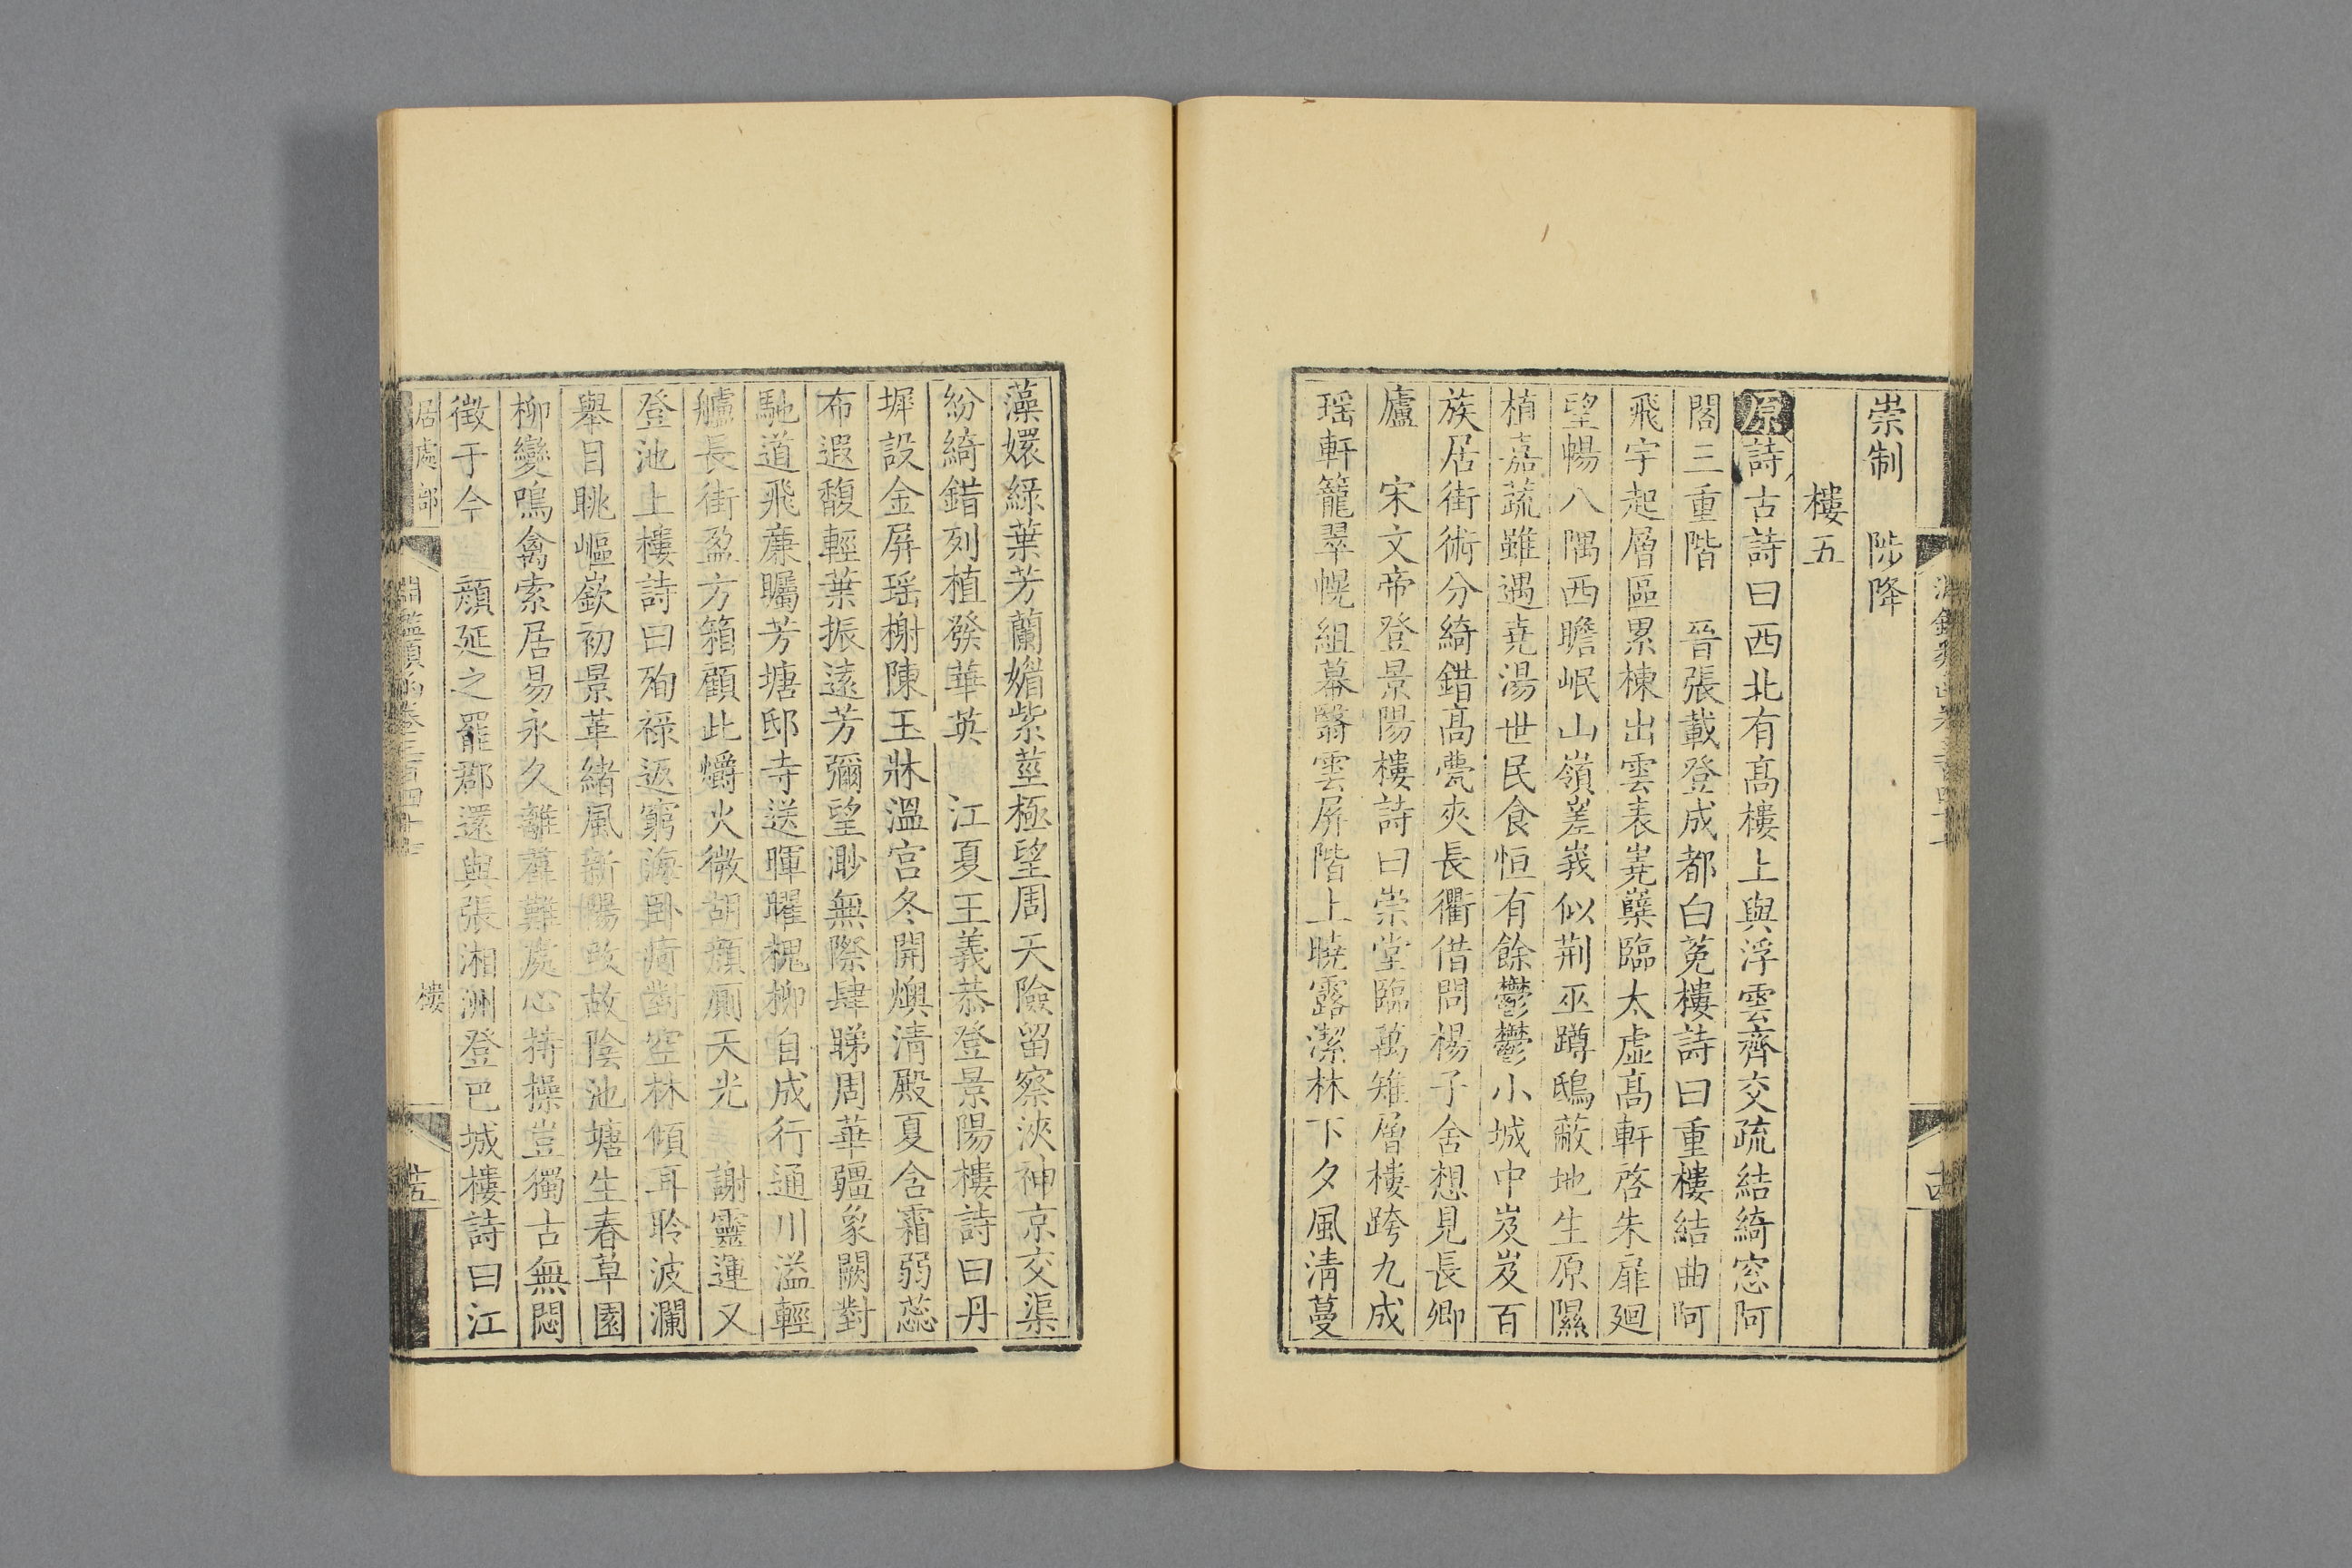 崇制　陟降
樓五
原詩古詩曰西北有高樓上與浮雲齊交疏結綺窓阿
閣三重階　晉張載登成都白菟樓詩曰重樓結曲阿
飛宇起層區累棟出雲表嶤櫱臨太虛高軒啓朱扉廻
望暢八隅西瞻岷山嶺嵳峩似荆巫蹲鴟蔽地生原隰
植嘉蔬雖遇堯湯世民食恒有餘鬱鬱小城中岌岌百
族居街術分綺錯高甍夾長衢借問楊子舍想見長卿
廬　宋文帝登景陽樓詩曰崇堂臨萬雉層樓跨九成
瑶軒籠翠幌組幕翳雲屏階上曉露潔林下夕風淸蔓
藻嬛緑葉芳蘭媚紫莖極望周天險留察浹神京交渠
紛綺錯列植發華英　江夏王義恭登景陽樓詩曰丹
墀設金屏瑶榭陳玉牀溫宫冬開燠清殿夏含霜弱蕊
布遐馥輕葉振遠芳彌望渺無際肆睇周華疆象闕對
馳道飛亷矚芳塘邸寺送暉曜槐柳自成行通川溢輕
艫長街盈方箱顧此爝火微胡顔厠天光　謝靈運又
登池上樓詩曰殉祿返窮海卧痾對空林傾耳聆波瀾
舉目眺嶇嶔初景革緒風新陽改故陰池塘生春草園
柳變鳴禽索居易永久離羣難處心持操豈獨古無悶
徵于今　顔延之罷郡還與張湘洲登巴城樓詩曰江
居處部　淵鑑類函卷三百四十七　樓